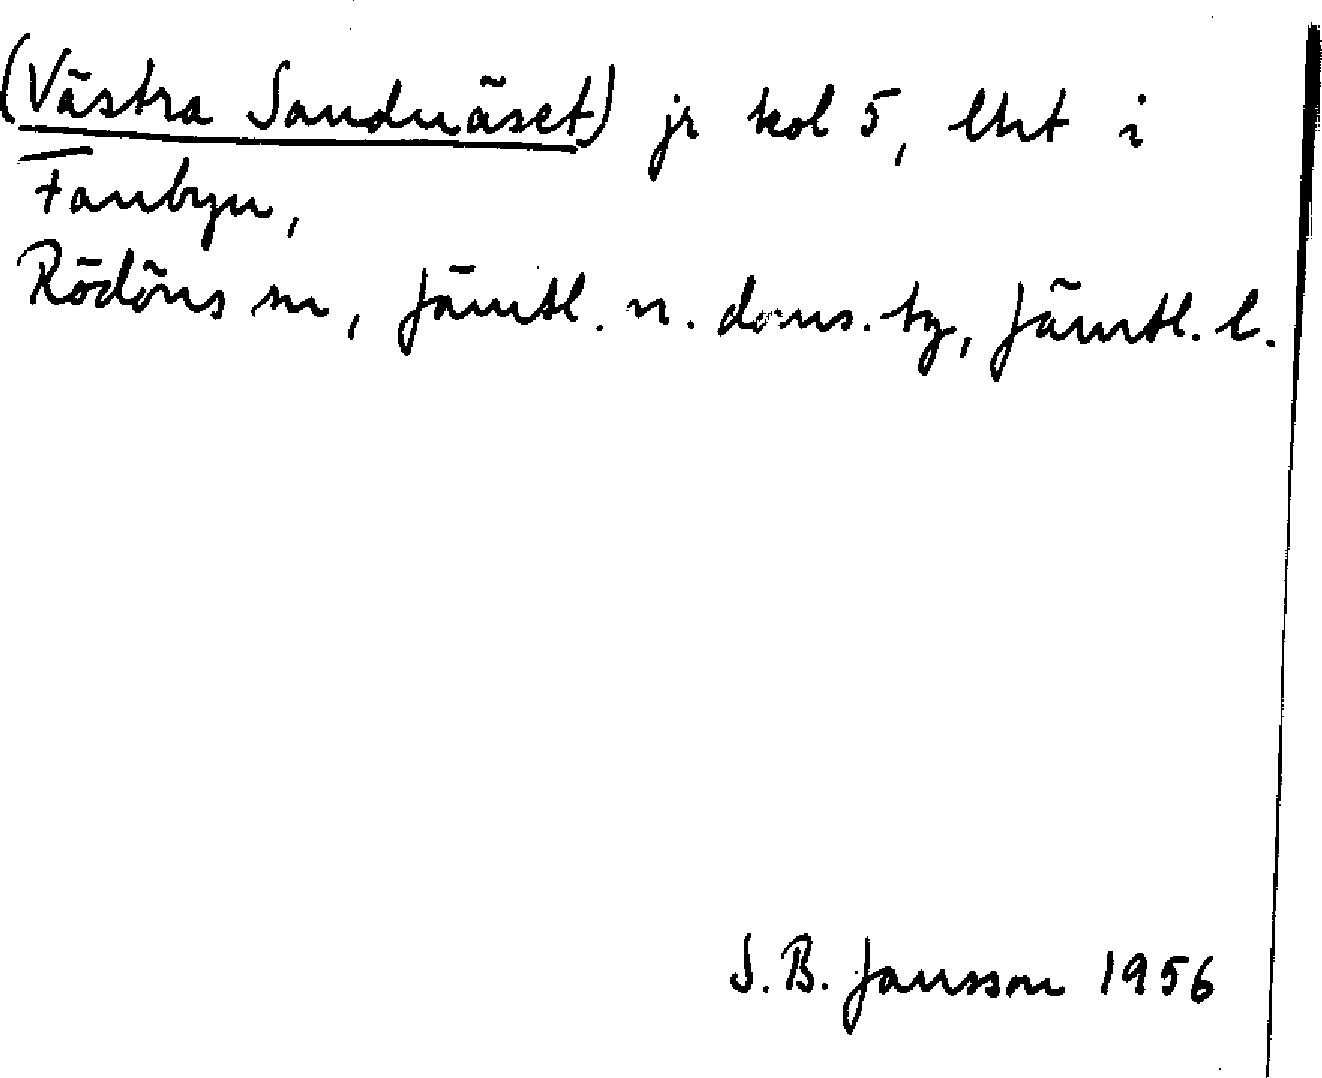 (Västra Sandnäset) jr kol 5, lht i
Fanbyn,
Rödöns sn, Jämtl. n. doms. tg, Jämtl. l.
S.B. Jansson 1956